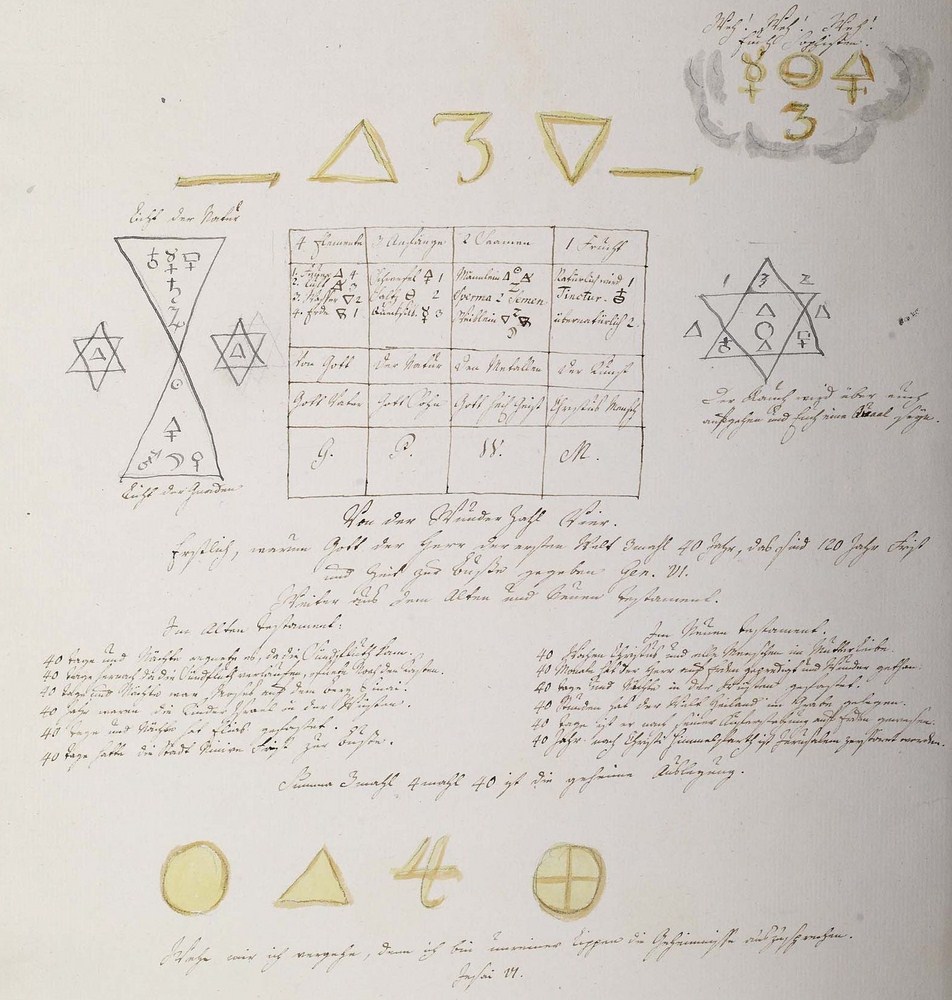 Weh! Weh! Weh!
Euch Sophisten.
3
3
Licht der Natur
4 Elemente
3 Anfänge
2 Saamen
1 Frucht
1. Feuer 4
2. Luft 3
3. Wasser 2
4. Erde 1
Schwefel 1
Saltz 2
Quecksilb. 3
Männlein
Sperma 2 Semen
Weiblein
Natürlich wird 1
Tinctur.
übernatürlich 2.
Von Gott
Der Natur
Den Metallen
Der Kunst
Gott Vater
Gott Sohn
Gott heil. Geist
Christus Mensch
G.
P.
W.
M.
1 3 2
Der Rauch wird über euch
aufgehen und Euch eine Quaal seyn.
Licht der Gnaden
Von der Wunder Zahl Vier.
Erstlich, warum Gott der Herr der ersten Welt 3mahl 40 Jahr, das sind 120 Jahr Frist
und Zeit zur Buße gegeben Gen. VI.
Weiter aus dem Alten und Neuen Testament.
Im Alten Testament:
40 Tage und Nächte regnete es, da die Sündfluth kam.
40 Tage hernach da die Sündfluth verlaufen,
40 Tage und Nächte war Moses auf dem Berg Sinai.
40 Jahr waren die Kinder Israel in der Wüsten.
40 Tage und Nächte hat Elias gefastet.
40 Tage hatte die Stadt Ninive Frist zur Buße.
Im Neuen Testament.
40 Wochen Christus und alle Menschen im Mutterleibe.
40 Monat hat der Herr auf Erden gepredigt und Wunder gethan.
40 Tage und Nächte in der Wüsten gefastet.
40 Stunden hat der Welt Heiland im Grabe gelegen.
40 Tage ist er nach seiner Auferstehung auf Erden gewesen.
40 Jahr nach Christi Himmelfarth ist Jerusalem zerstört worden.
Summa 3mahl 4mahl 40 ist die geheime Auslegung.
4
Wehe mir ich vergehe, denn ich bin unreiner Lippen die Geheimnisse auszusprechen.
Jesai VI.